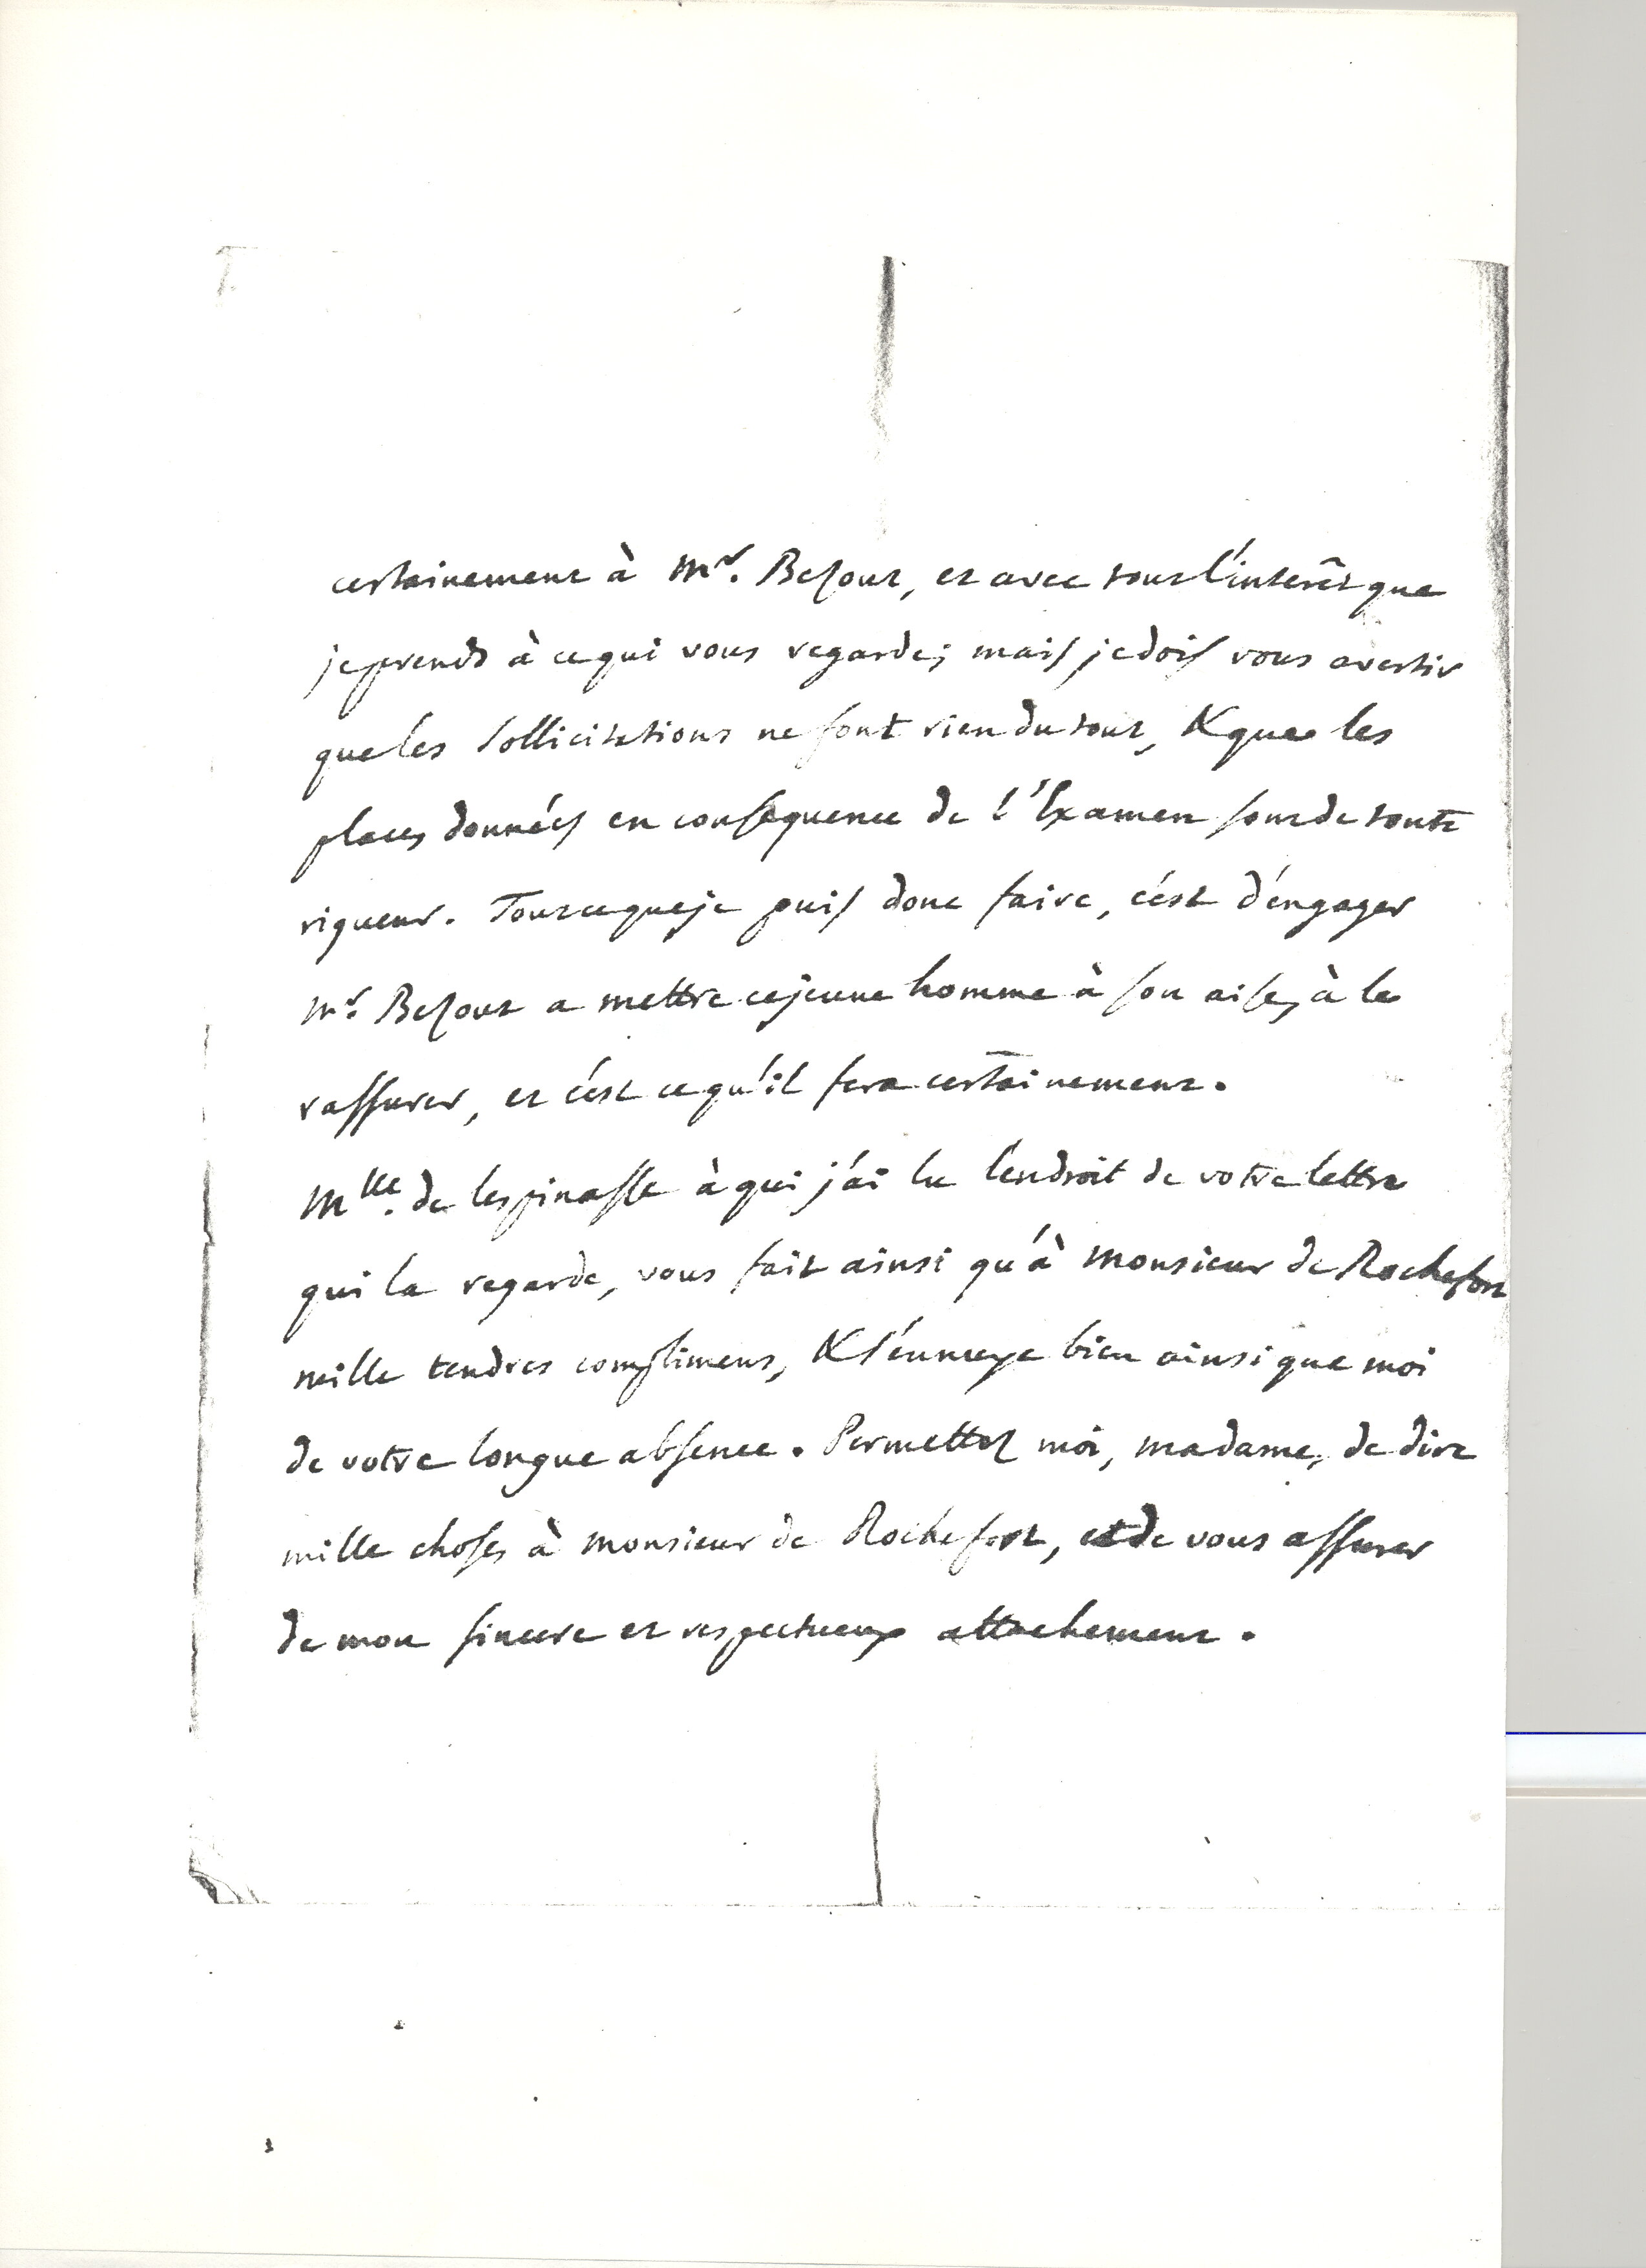 certainement à Mr. Bezout, et avec tout l'intérêt que
je prends à ce qui vous regarde; mais je dois vous avertir
que les sollicitations ne font rien du tout, & que les
places données en conséquence de l'Examen sont de toute
rigueur. Tout ce que je puis donc faire, c'est d'engager
Mr. Bezout a mettre ce jeune homme à son aise, à le
rassurer, et c'est ce qu'il fera certainement.
Mlle. de lespinasse à qui j'ai lu l'endroit de votre lettre
qui la regarde, vous fait ainsi qu'à Monsieur de Rochefort
mille tendres complimens, & s'ennuye bien ainsi que moi
de votre longue absence. Permettez moi, madame, de dire
mille choses à Monsieur de Rochefort, et de vous assurer
de mon sincere et respectueux attachement.